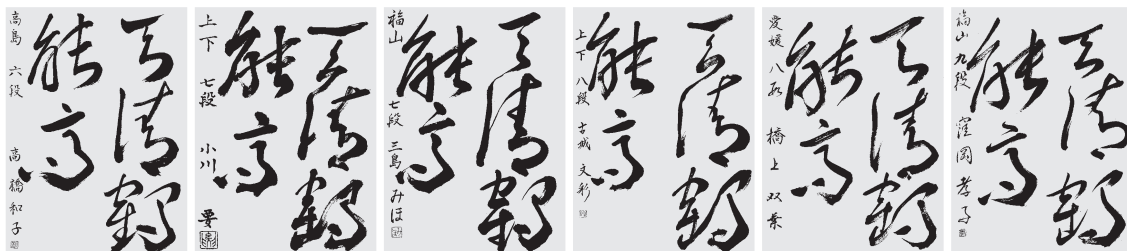 天清鶴
能高
高島 六七段 高橋和子
天清鶴
能高
上下 七段 小川 要
天清鶴
能高
福山 七段 三島みほ
天清鶴
能高
上下 八段 古城文彩
天清鶴
能高
愛媛 八段 橋上双葉
天清鶴
能高
福山 九段 窪岡孝子